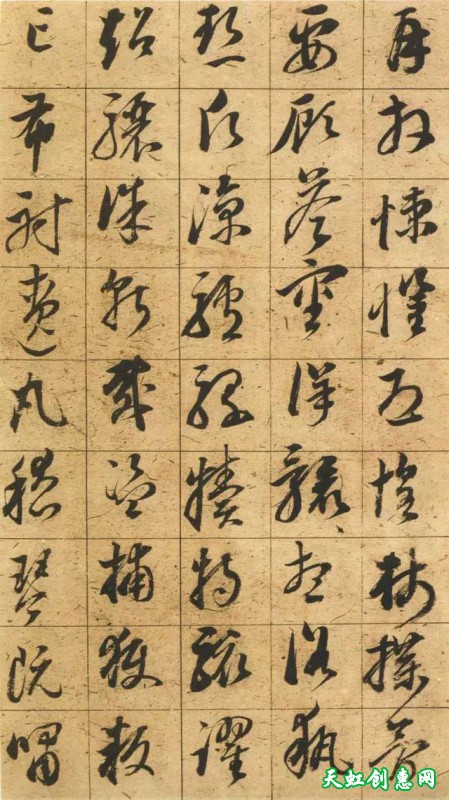 再拜悚懼恐惶牋牒簡
要顧答審詳骸想浴執
熱願涼驢騾犢特駭躍
超驤誅斬賊盜捕獲叛
亡布射遼丸嵇琴阮嘯
天虹创惠网